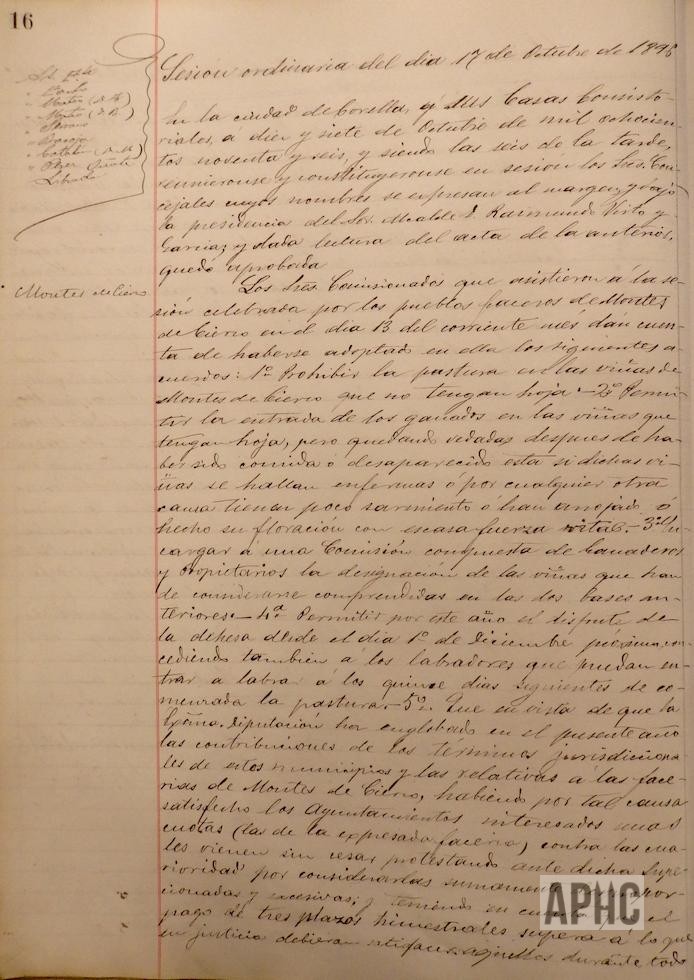 16
Sesión ordinaria del dia 17 de Octubre de 1896
En la ciudad de Corella, y sus Casas Consisto-
riales, á diez y siete de Octubre de mil ochocien-
tos noventa y seis, y siendo las seis de la tarde,
reunieronse y constituyeronse en sesión los Sres. Con-
cejales cuyos nombres se expresan al margen, y bajo
la presidencia del Sor. Alcalde D. Raimundo Virto y
Garcia; y dada lectura del acta de la anterior,
quedó aprobada
Montes de Cierzo
Los Sres Comisionados que asistieron á la se-
sión celebrada por los pueblos faceros de Montes
de Cierzo en el dia 13 del corriente mes dán cuen-
ta de haberse adoptado en ella los siguientes a-
cuerdos: 1º Prohibir la pastura en las viñas de
Montes de Cierzo que no tengan hoja - 2º Permi-
tir la entrada de los ganados en las viñas que
tengan hoja, pero quedando vedadas despues de ha-
ber sido comida ó desaparecido esta si dichas vi-
ñas se hallan enfermas ó por cualquier otra
causa tienen poco sarmiento ó han arrojado ó
hecho su floración con escasa fuerza vital.- 3º En-
cargar á una Comisión compuesta de Ganaderos
y propietarios la designación de las viñas que han
de considerarse comprendidas en las dos bases an-
teriores.- 4º Permitir por este año el disfrute de
la dehesa desde el dia 1º de Diciembre próximo, con-
cediendo tambien á los labradores que puedan en-
trar a labrar á los quince dias siguientes de co-
menzada la pastura.- 5º Que en vista de que la
Excma. Diputación ha englobado en el presente año
las contribuciones de los terminos jurisdicciona-
les de estos municipios y las relativas á las face-
rias de Montes de Cierzo, habiendo por tal causa
satisfecho los Ayuntamientos interesados unas
cuotas (las de la expresada faceria) contra las cua-
les vienen sin cesar protestando ante dicha Supe-
rioridad por considerarlas sumamente
cionadas y excesivas; y teniendo en cuenta el
pago de tres plazos trimestrales supera á lo que
en justicia debieran satisfacer aquellos durante todo
APHC